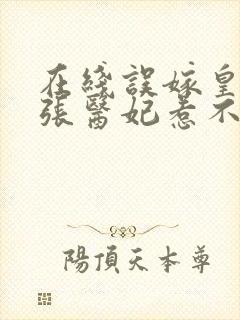 在綫誤嫁皇
張醫妃惹不
陽頂天本尊